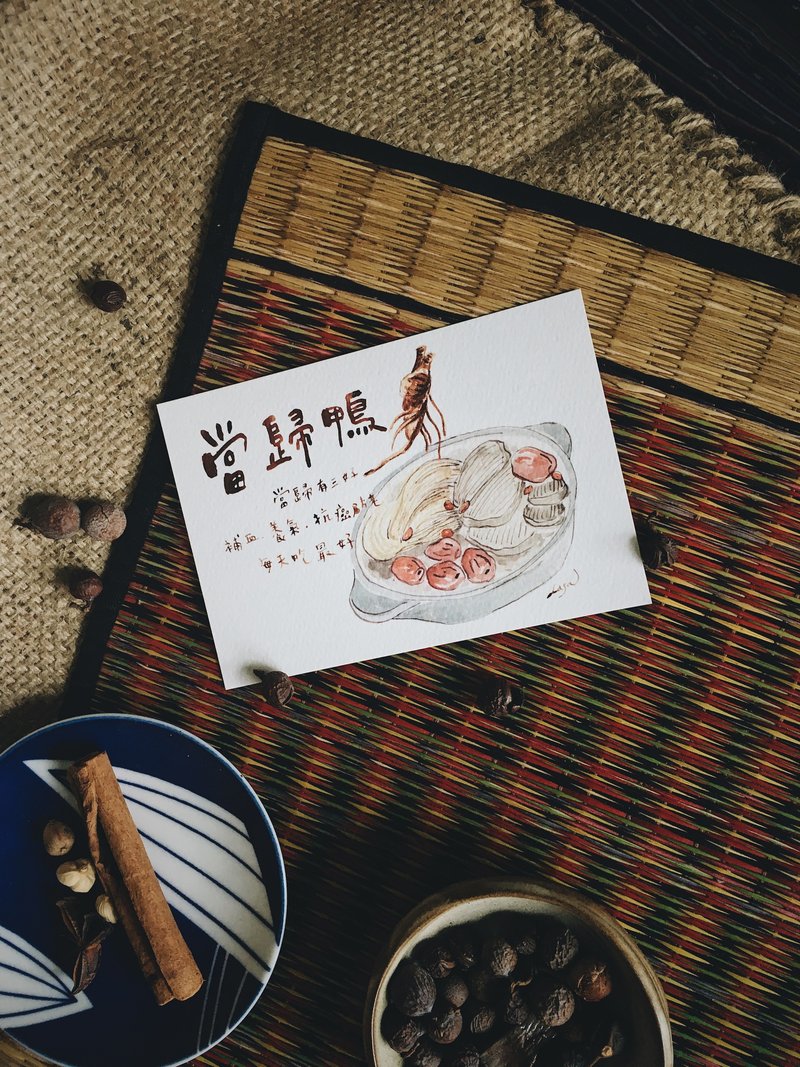 當歸鴨
當歸有三好
補血、養氣、抗癌
每天吃最好